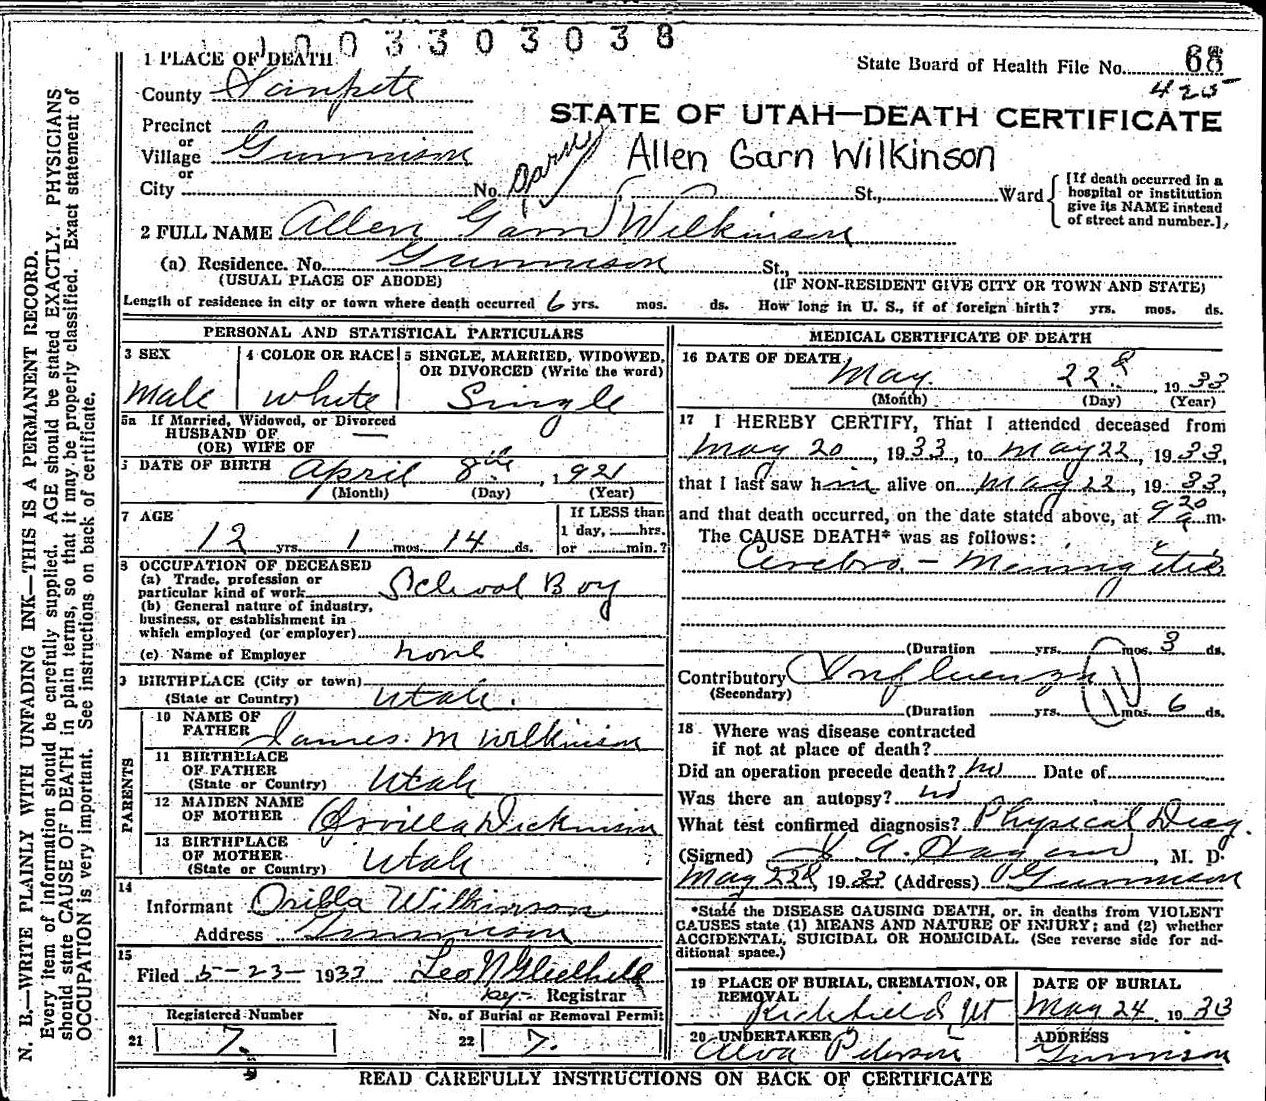 1003303038
1 PLACE OF DEATH
State Board of Health File No. 68
425
County Sanpete
STATE OF UTAH—DEATH CERTIFICATE
Precinct
or
Village Gunnison
Allen Garn Wilkinson
or
City No. Garn St., Ward
[If death occurred in a
hospital or institution
give its NAME instead
of street and number.]
2 FULL NAME Allen Garn Wilkinson
(a) Residence. No. Gunnison St.,
(USUAL PLACE OF ABODE) (IF NON-RESIDENT GIVE CITY OR TOWN AND STATE)
Length of residence in city or town where death occurred 6 yrs. mos. ds. How long in U. S., if of foreign birth? yrs. mos. ds.
PERSONAL AND STATISTICAL PARTICULARS
3 SEX 4 COLOR OR RACE 5 SINGLE, MARRIED, WIDOWED,
OR DIVORCED (Write the word)
Male white Single
5a If Married, Widowed, or Divorced
HUSBAND OF —
(OR) WIFE OF
6 DATE OF BIRTH April 8th, 1921
(Month) (Day) (Year)
7 AGE If LESS than
1 day, hrs.
12 yrs. 1 mos. 14 ds. or min.?
8 OCCUPATION OF DECEASED
(a) Trade, profession or
particular kind of work School Boy
(b) General nature of industry,
business, or establishment in
which employed (or employer)
(c) Name of Employer none
9 BIRTHPLACE (City or town)
(State or Country) Utah.
PARENTS
10 NAME OF
FATHER James. M Wilkinson
11 BIRTHPLACE
OF FATHER
(State or Country) Utah
12 MAIDEN NAME
OF MOTHER Orvilla Dickinson
13 BIRTHPLACE
OF MOTHER
(State or Country) Utah
14
Informant Wilkinson
Address Gunnison
15
Filed 5-23- 1933 Leo N Gledhill
Registrar
Registered Number No. of Burial or Removal Permit
21 7. 22 7.
MEDICAL CERTIFICATE OF DEATH
16 DATE OF DEATH
May 22d 1933
(Month) (Day) (Year)
17 I HEREBY CERTIFY, That I attended deceased from
May 20, 1933, to May 22, 1933,
that I last saw him alive on May 22, 1933,
and that death occurred, on the date stated above, at 9 20 a m.
The CAUSE DEATH* was as follows:
Cerebro - Meningitis
(Duration yrs. mos. 3 ds.
Contributory Influenza
(Secondary)
11
(Duration yrs. mos. 6 ds.
18 Where was disease contracted
if not at place of death?
Did an operation precede death? no Date of
Was there an autopsy? no
What test confirmed diagnosis? Physical Diag.
(Signed) , M. D.
May 22d 1933 (Address) Gunnison
*State the DISEASE CAUSING DEATH, or, in deaths from VIOLENT
CAUSES state (1) MEANS AND NATURE OF INJURY; and (2) whether
ACCIDENTAL, SUICIDAL OR HOMICIDAL. (See reverse side for ad-
ditional space.)
19 PLACE OF BURIAL, CREMATION, OR
REMOVAL
Richfield Ut
DATE OF BURIAL
May 24 1933
20 UNDERTAKER
Alva Peterson
ADDRESS
Gunnison
READ CAREFULLY INSTRUCTIONS ON BACK OF CERTIFICATE
N. B.—WRITE PLAINLY WITH UNFADING INK—THIS IS A PERMANENT RECORD.
Every item of information should be carefully supplied. AGE should be stated EXACTLY. PHYSICIANS
should state CAUSE OF DEATH in plain terms, so that it may be properly classified. Exact statement of
OCCUPATION is very important. See instructions on back of certificate.